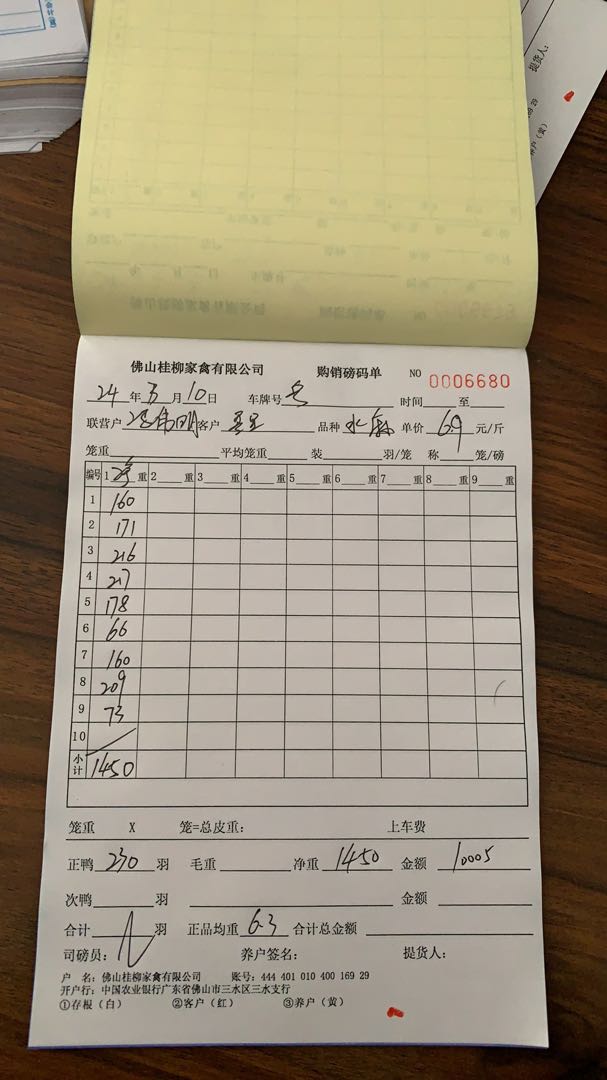 提货人：
养户（黄）
佛山桂柳家禽有限公司 购销磅码单 NO 0006680
24年3月10日 车牌号 时间 至
联营户 客户 品种 水麻 单价 6.9 元/斤
笼重 平均笼重 装 羽/笼 称 笼/磅
编号 1 净重 2 重 3 重 4 重 5 重 6 重 7 重 8 重 9 重
1 160
2 171
3 216
4 217
5 178
6 66
7 160
8 209
9 73
10
小计 1450
笼重 X 笼=总皮重： 上车费
正鸭 230 羽 毛重 净重 1450 金额 10005
次鸭 羽 金额
合计 羽 正品均重 6.3 合计总金额
司磅员： 养户签名： 提货人：
户 名：佛山桂柳家禽有限公司 账号：444 401 010 400 169 29
开户行：中国农业银行广东省佛山市三水区三水支行
①存根（白） ②客户（红） ③养户（黄）